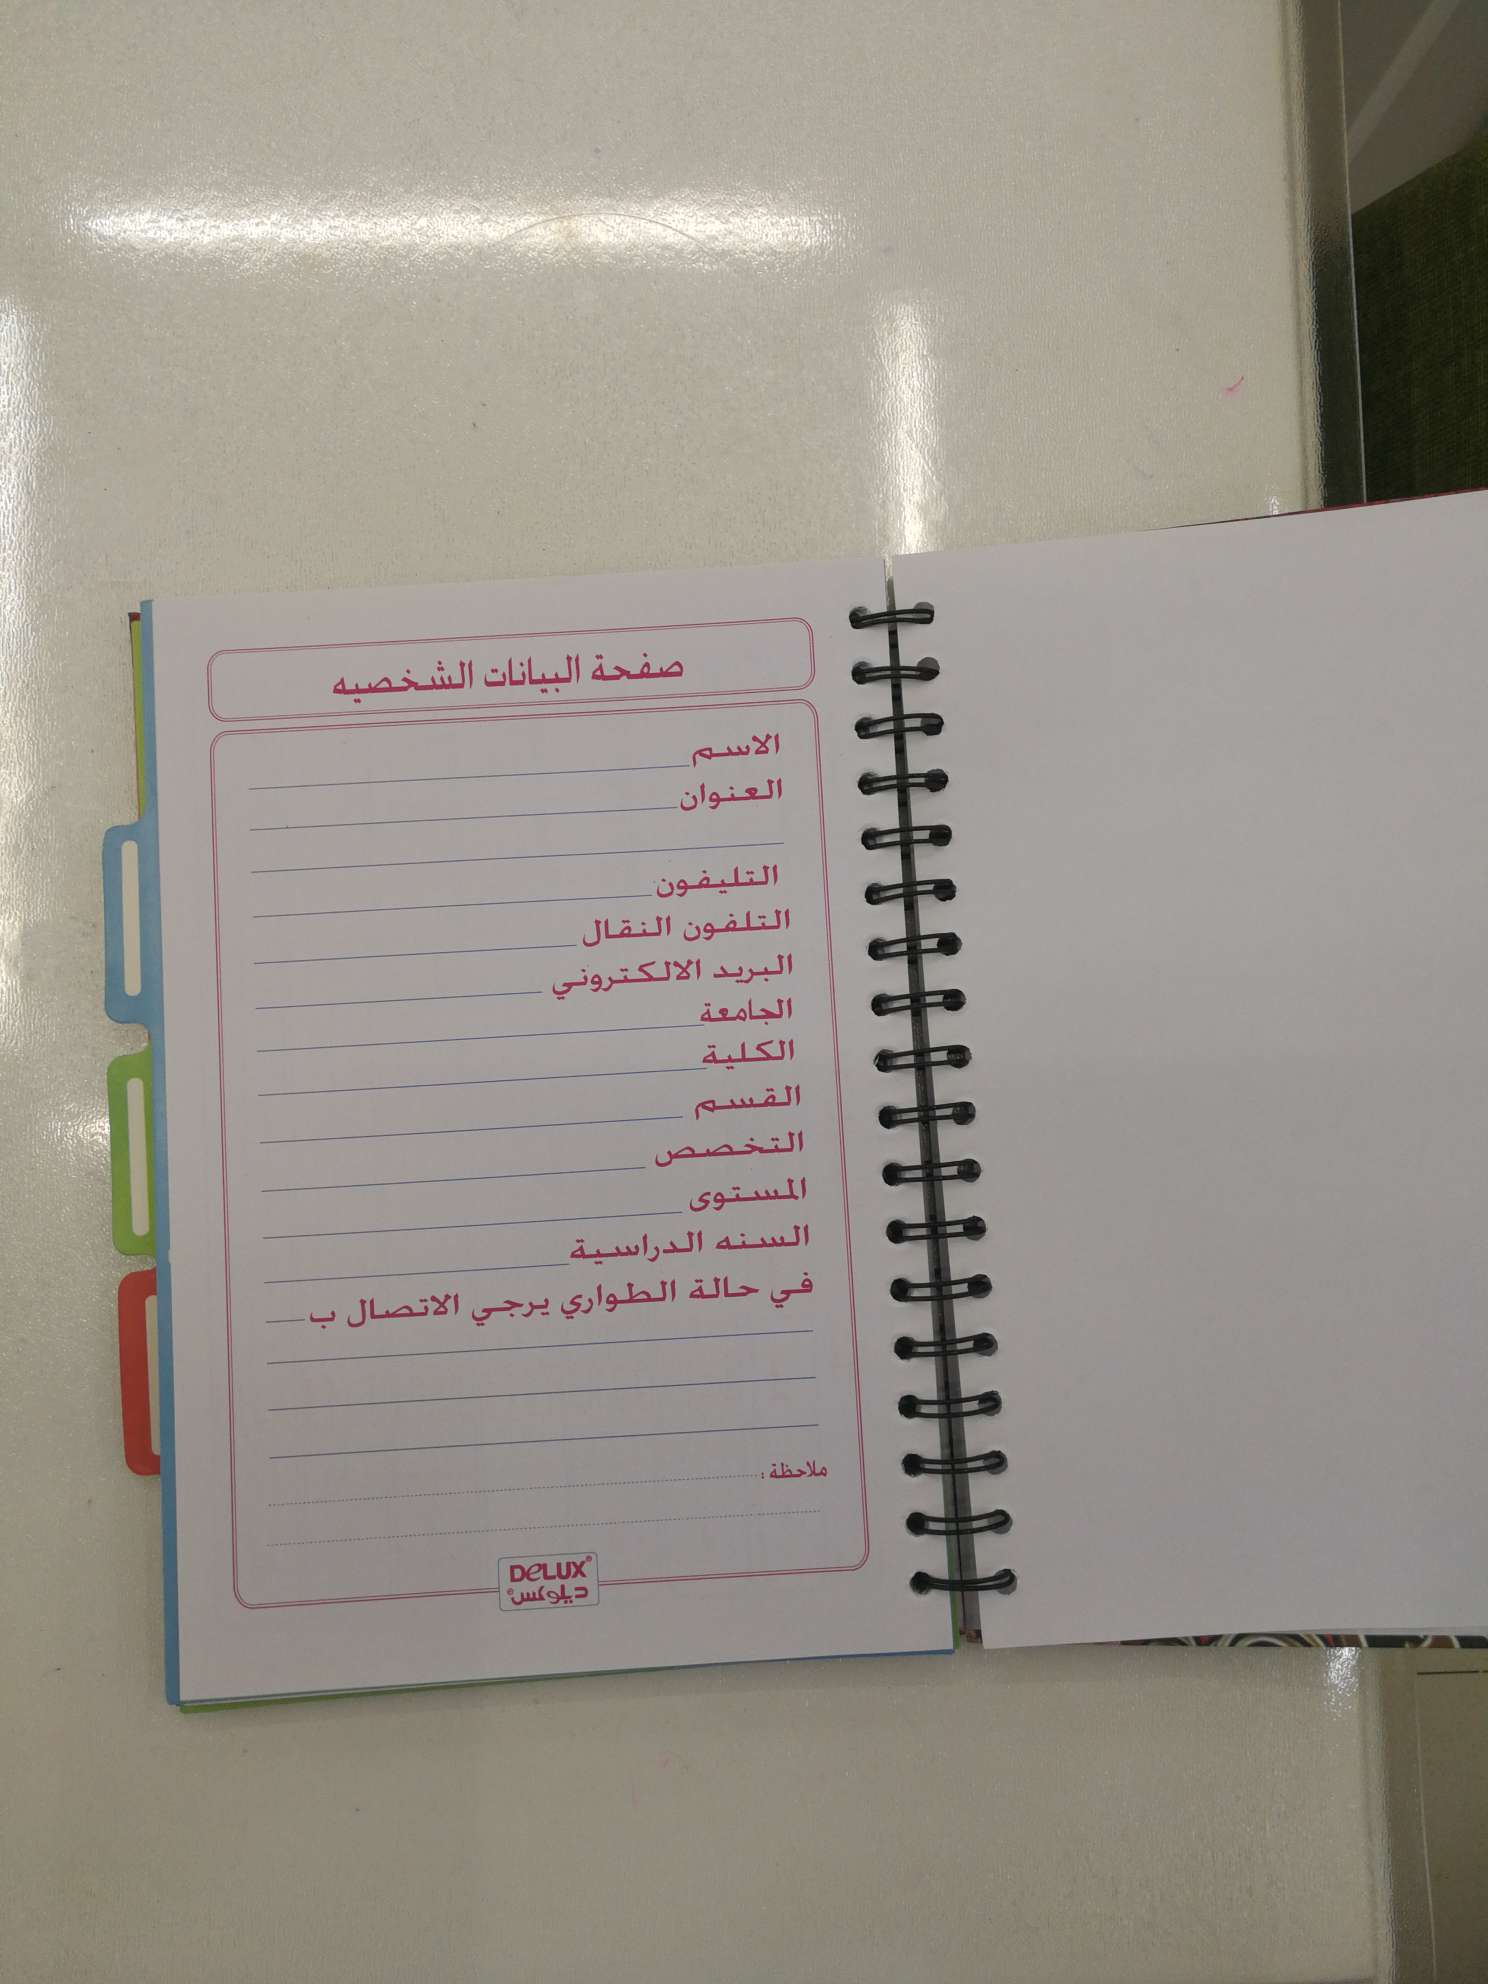 صفحة البيانات الشخصيه
الاسم
العنوان
التليفون
التلفون النقال
البريد الالكتروني
الجامعة
الكلية
القسم
التخصص
المستوى
السنه الدراسية
في حالة الطواري يرجي الاتصال ب
ملاحظة :
DeLUX®
ديلوكس®